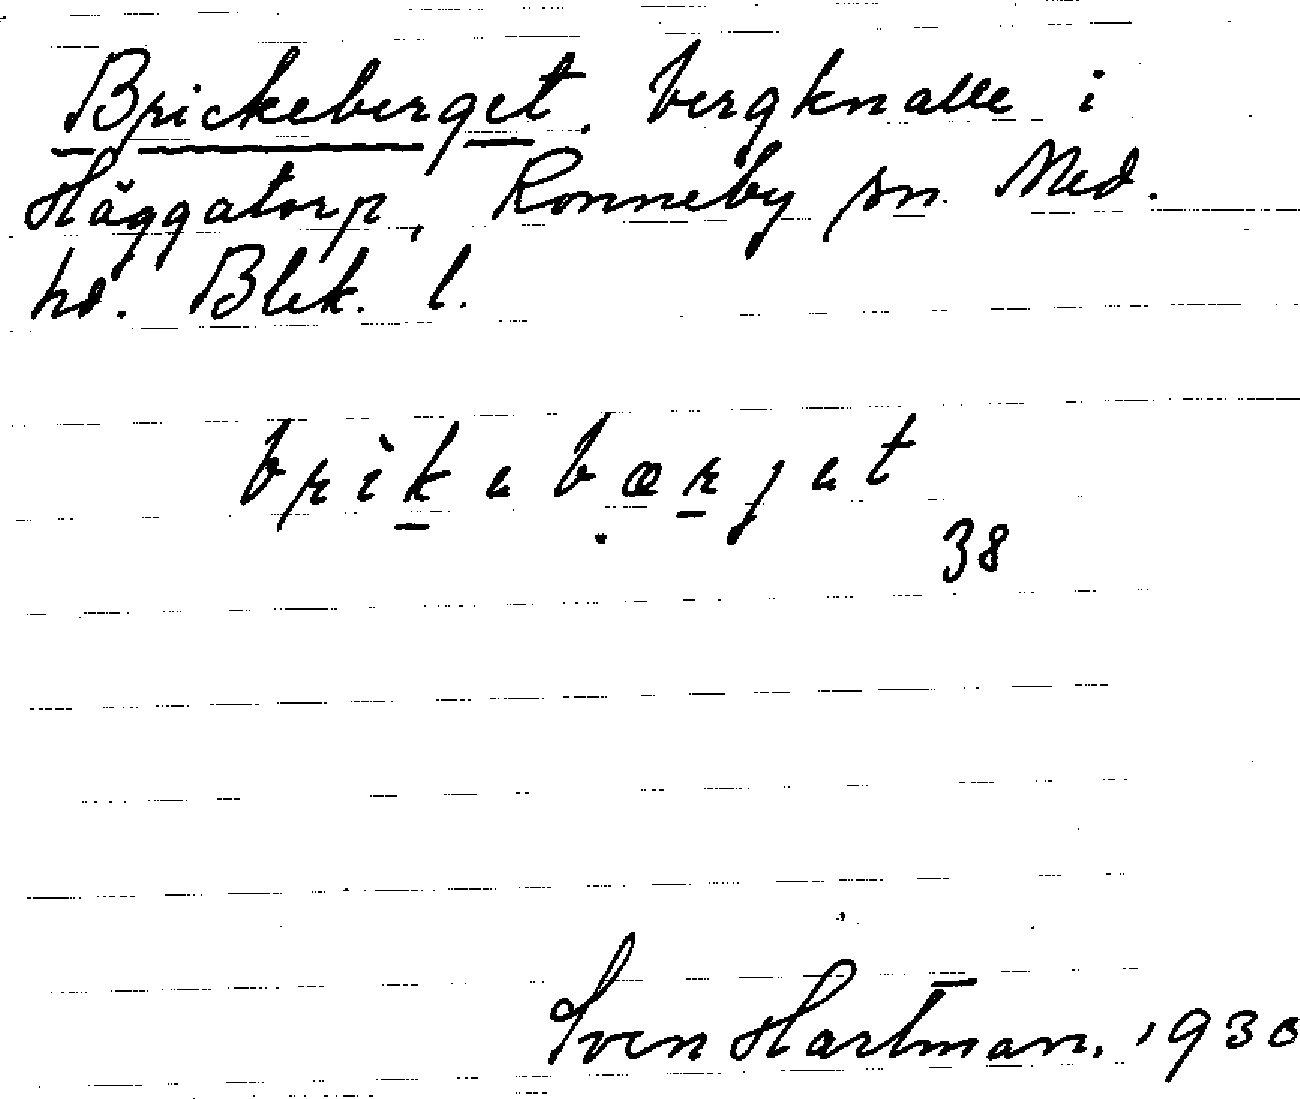 Brickeberget, bergknalle i
Häggatorp, Ronneby sn. Med.
hd. Blek. l.
brìkebærjet
38
Sven Hartman, 1930